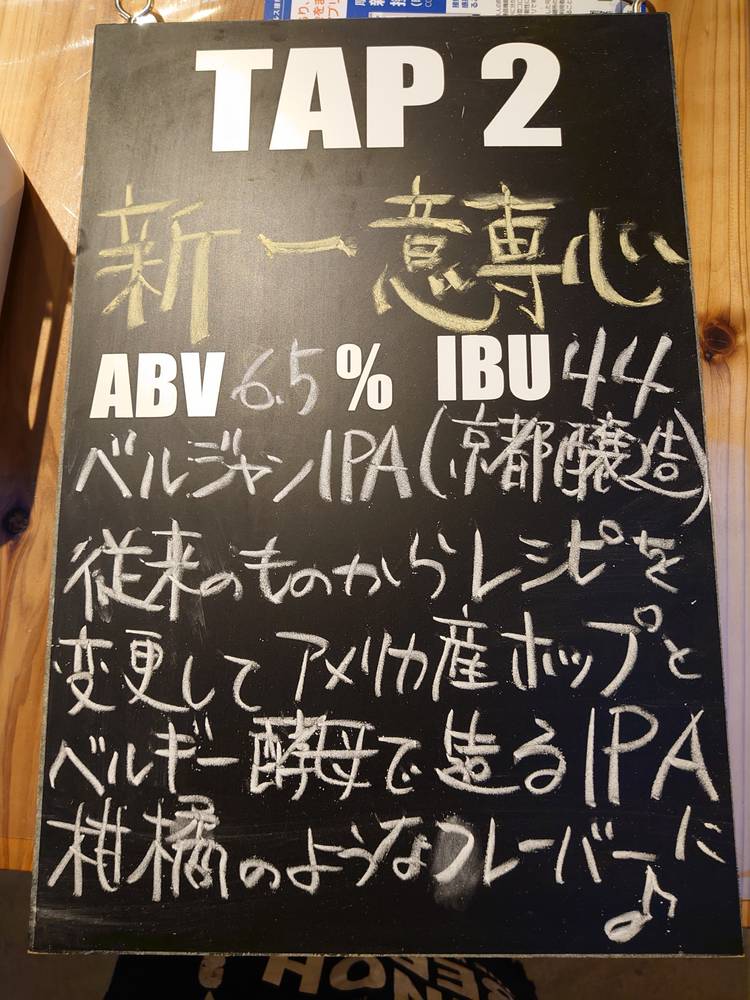 TAP 2
新一意専心
ABV 6.5% IBU 44
ベルジャンIPA(京都醸造)
従来のものからレシピを
変更してアメリカ産ホップと
ベルギー酵母で造るIPA
柑橘のようなフレーバーに♪